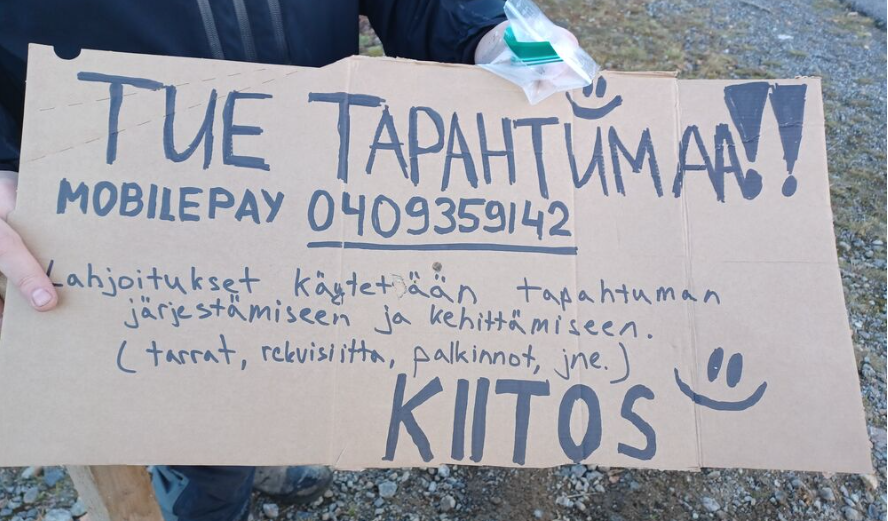 TUE TAPAHTUMAA!!
MOBILEPAY 0409359142
Lahjoitukset käytetään tapahtuman
järjestämiseen ja kehittämiseen.
(tarrat, rekvisiitta, palkinnot, jne.)
KIITOS